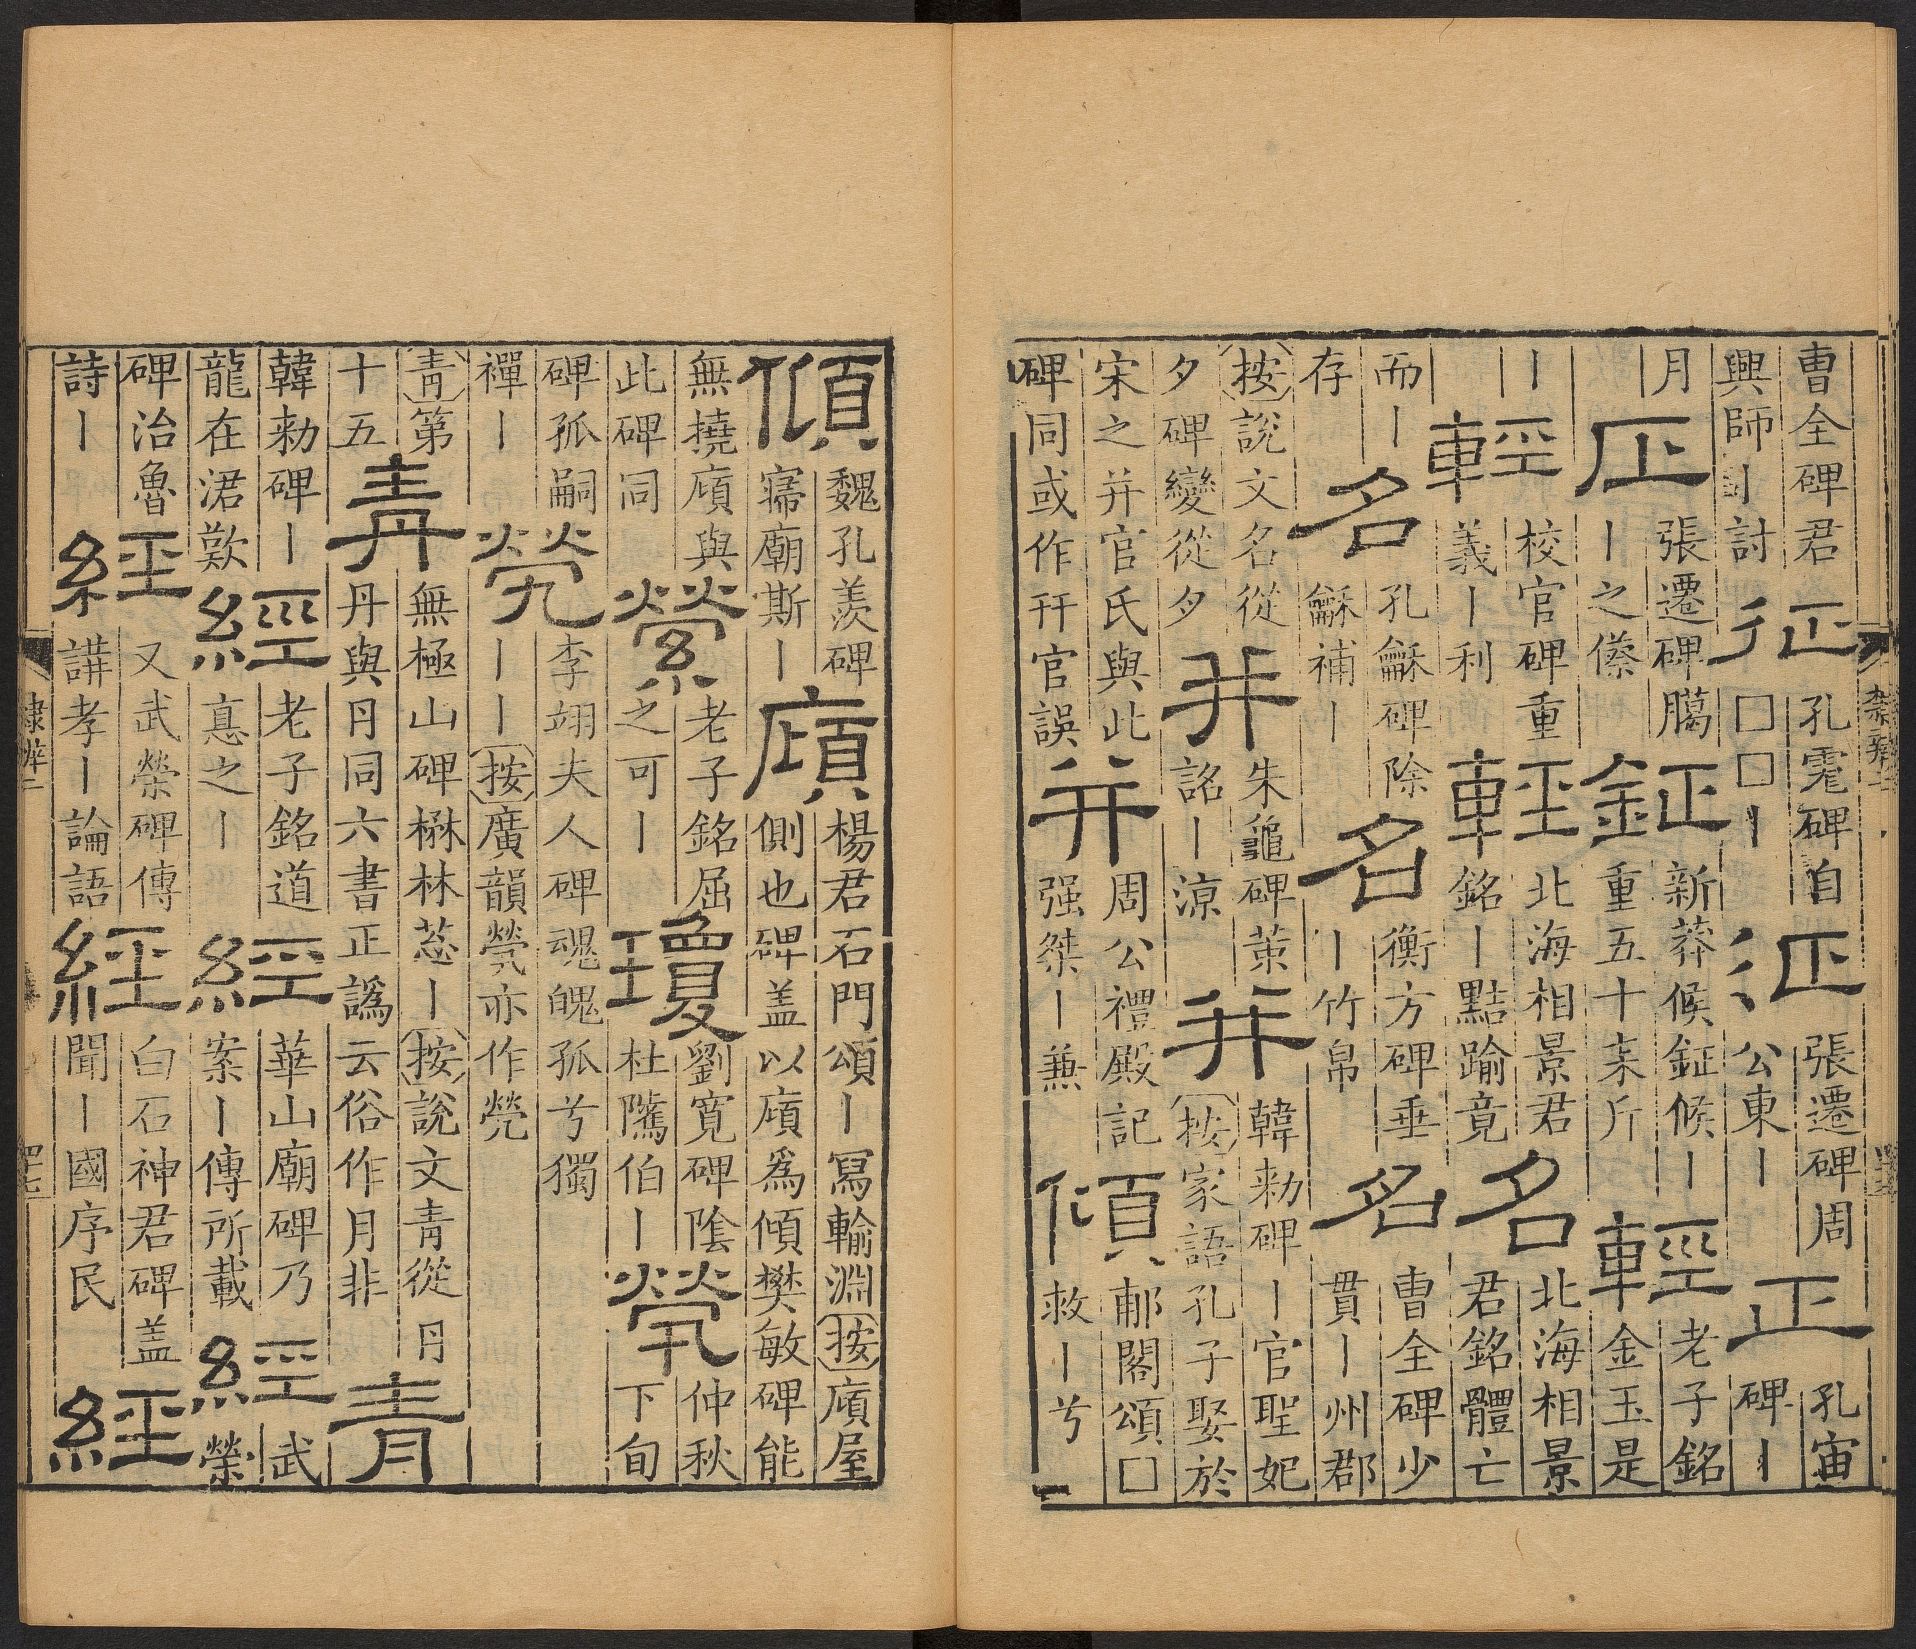 曹全碑君興師丨討征孔霓碑自□□丨征張遷碑周公東丨正孔宙碑丨
月正張遷碑臈丨之傺鉦新莽候鉦候丨重五十枽斤輕老子銘金玉是
丨輕校官碑重義丨利輕北海相景君銘丨黠踰竟名北海相景君銘體亡
而丨存名孔龢碑除龢補丨名衡方碑垂丨竹帛名曹全碑少貫丨州郡
按說文名從夕碑變從夕幷朱龜碑策詺丨涼幷韓勑碑丨官聖妃按家語孔子娶於
宋之并官氏與此碑同或作幵官誤并周公禮殿記强桀丨兼傾郙閣頌□救丨兮
傾魏孔羨碑寢廟斯丨廎楊君石門頌丨寫輸淵按廎屋側也碑盖以廎爲傾樊敏碑能
無撓廎與此碑同縈老子銘屈之可丨瓊劉寬碑陰杜隲伯丨煢仲秋下旬
碑孤嗣禪丨㷀李翊夫人碑魂魄孤兮獨丨丨按廣韻煢亦作㷀
青第十五靑無極山碑楙林葱丨按說文靑從丹丹與円同六書正譌云俗作月非青
韓勑碑丨龍在涒歎經老子銘道悳之丨經華山廟碑乃案丨傳所載經武榮
碑治魯詩丨經又武榮碑傳講孝丨論語經白石神君碑盖聞丨國序民經